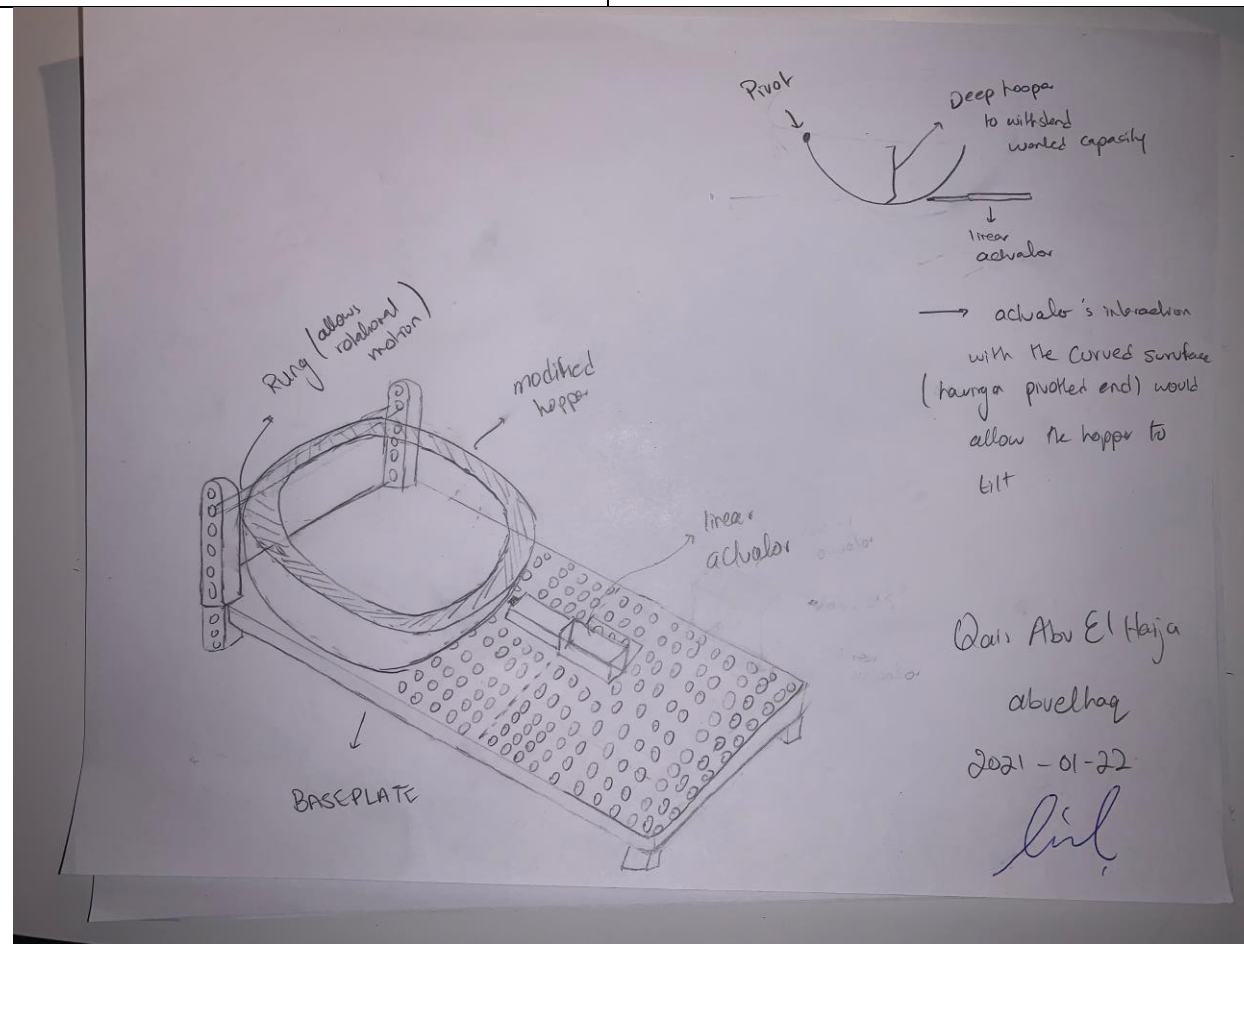 Pivot
Deep hoope
to withstand
wanted capasity
linear
actuator
→ actuator's interaction
with the curved suruface
(having a pivotted end) would
allow the hopper to
tilt
Rung (allows
rotational
motion)
modified
hopper
linear
actuator
BASEPLATE
Qais Abu El Haija
abuelhaq
2021-01-22